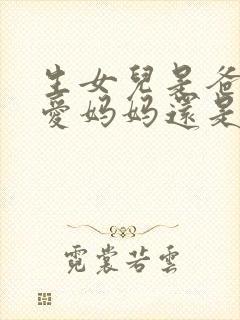 生女兒是爸
愛媽媽還是
霓裳若雲